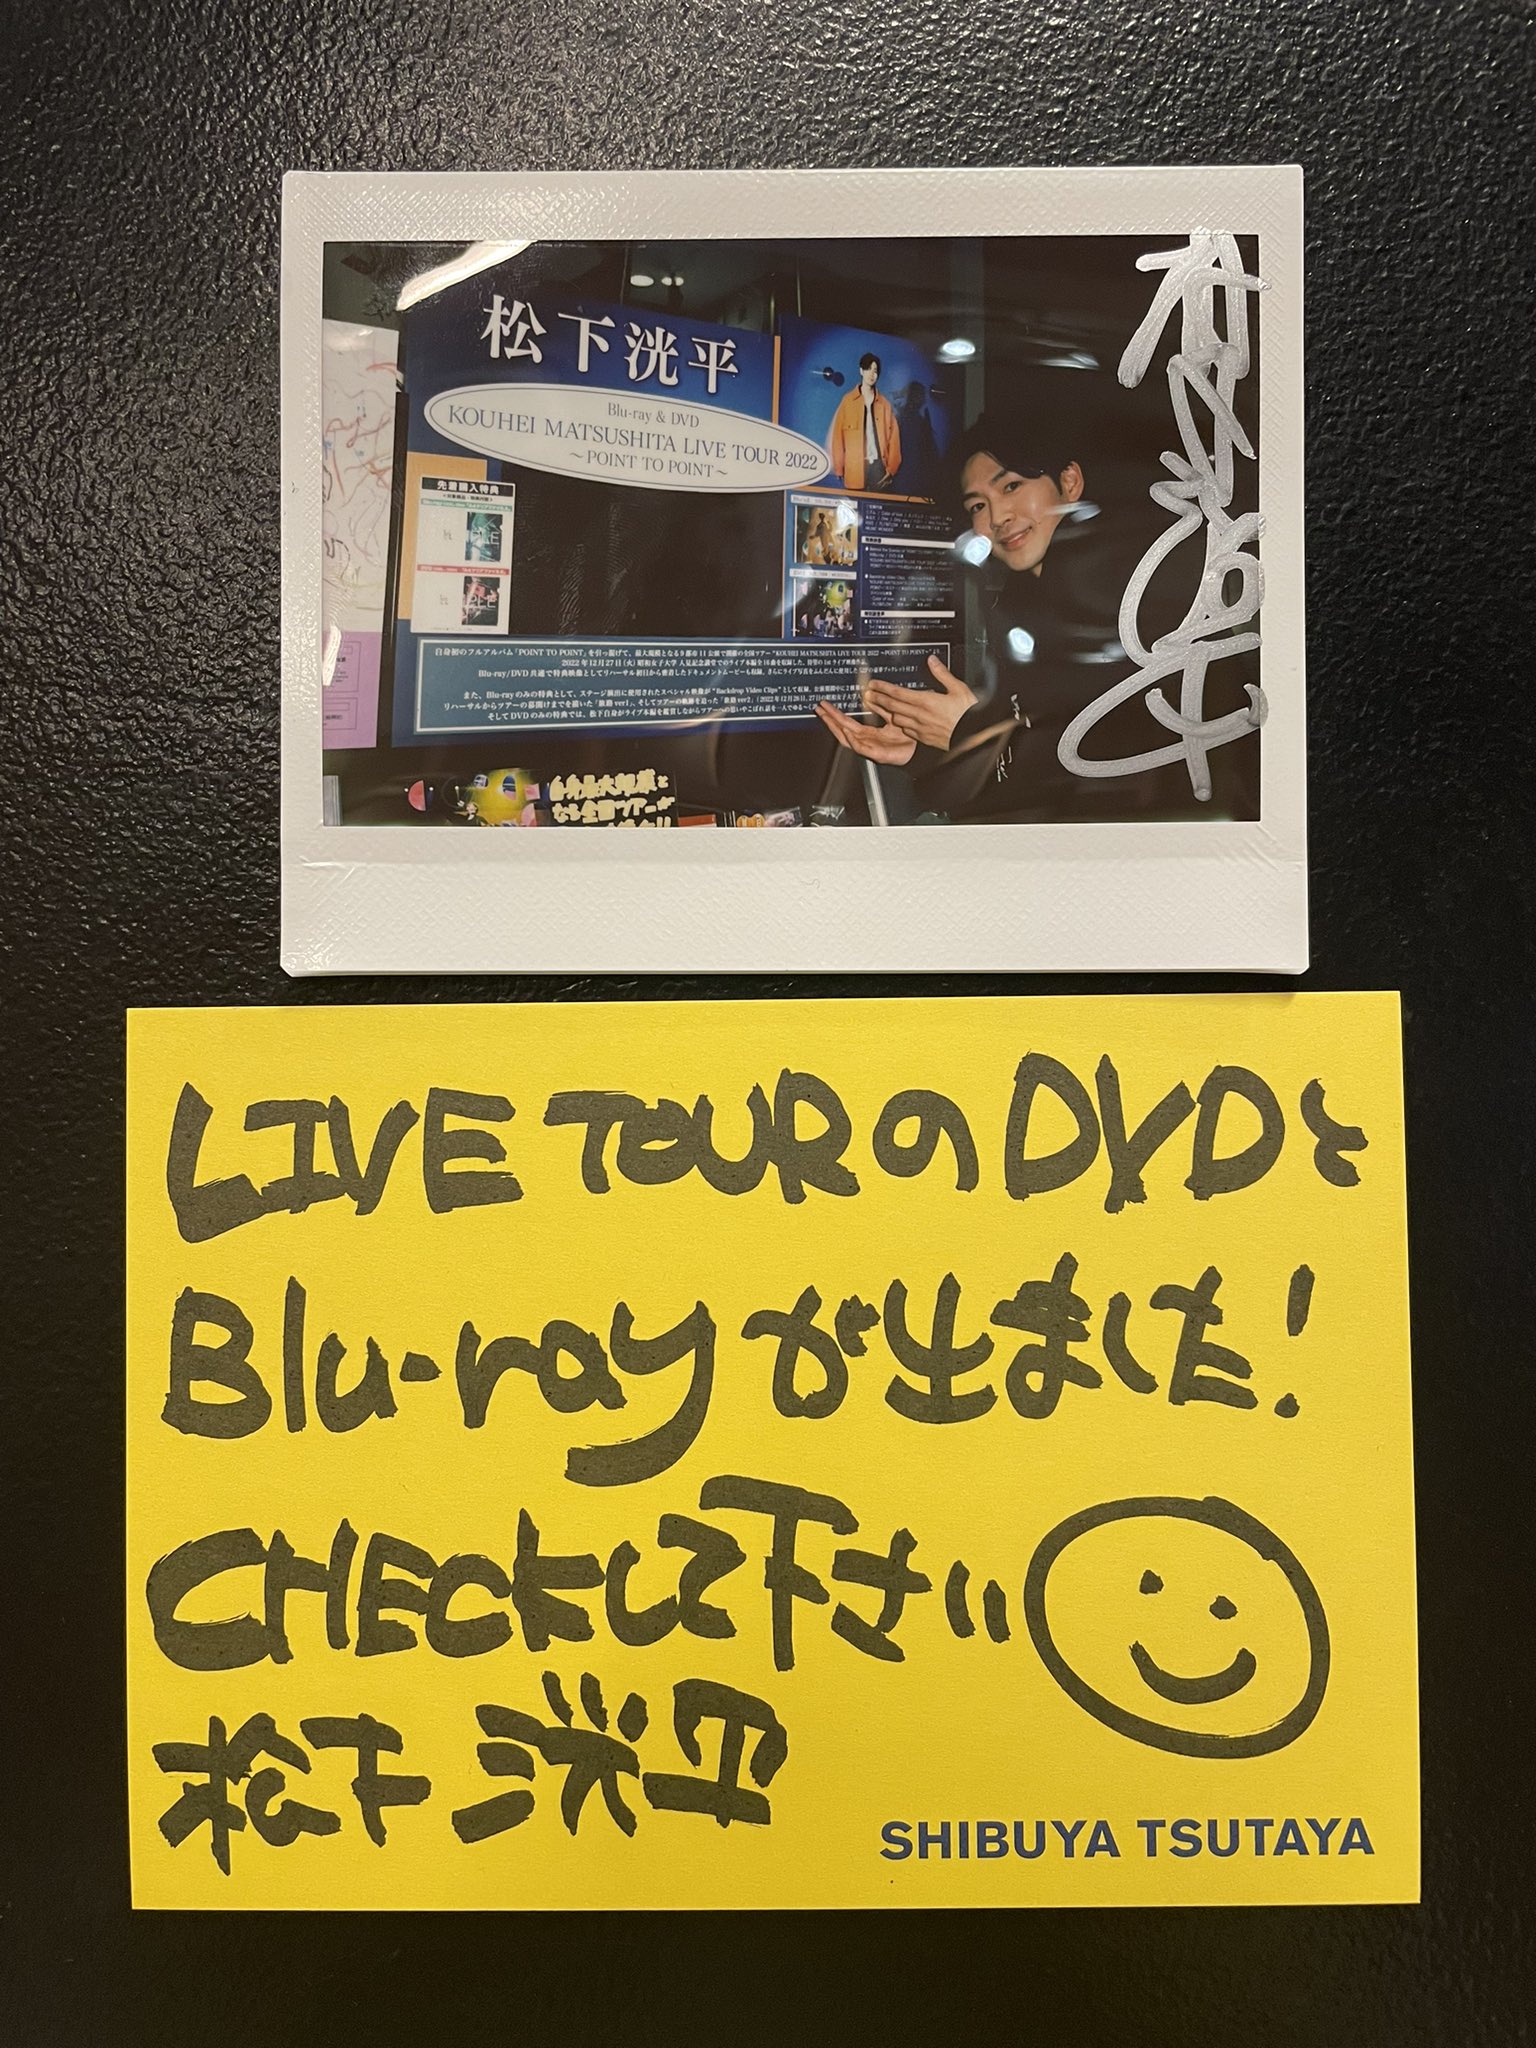 松下洸平
Blu-ray & DVD
KOUHEI MATSUSHITA LIVE TOUR 2022
～POINT TO POINT～
先着購入特典
自身初のフルアルバム「POINT TO POINT」を引っ提げて、最大規模となる9都市11公演で開催の全国ツアー"KOUHEI MATSUSHITA LIVE TOUR 2022 ～POINT TO POINT～"より、
2022年12月27日(火)昭和女子大学 人見記念講堂でのライブ本編全16曲を収録した、待望の1stライブ映像作品。
Blu-ray/DVD共通で特典映像としてリハーサル初日から密着したドキュメントムービーも収録。さらにライブ写真をふんだんに使用した
また、Blu-rayのみの特典として、ステージ演出に使用されたスペシャル映像が"Backdrop Video Clips"として収録。
リハーサルからツアーの幕開けまでを描いた「旅路 ver1」、そしてツアーの軌跡を追った「旅路 ver2」
そしてDVDのみの特典では、松下自身がライブ本編を鑑賞しながらツアーへの思いやこぼれ話を一人でゆる〜く
なる全国ツアーが
LIVE TOURのDVDと
Blu-rayが出ました!
CHECKして下さい
松下洸平
SHIBUYA TSUTAYA